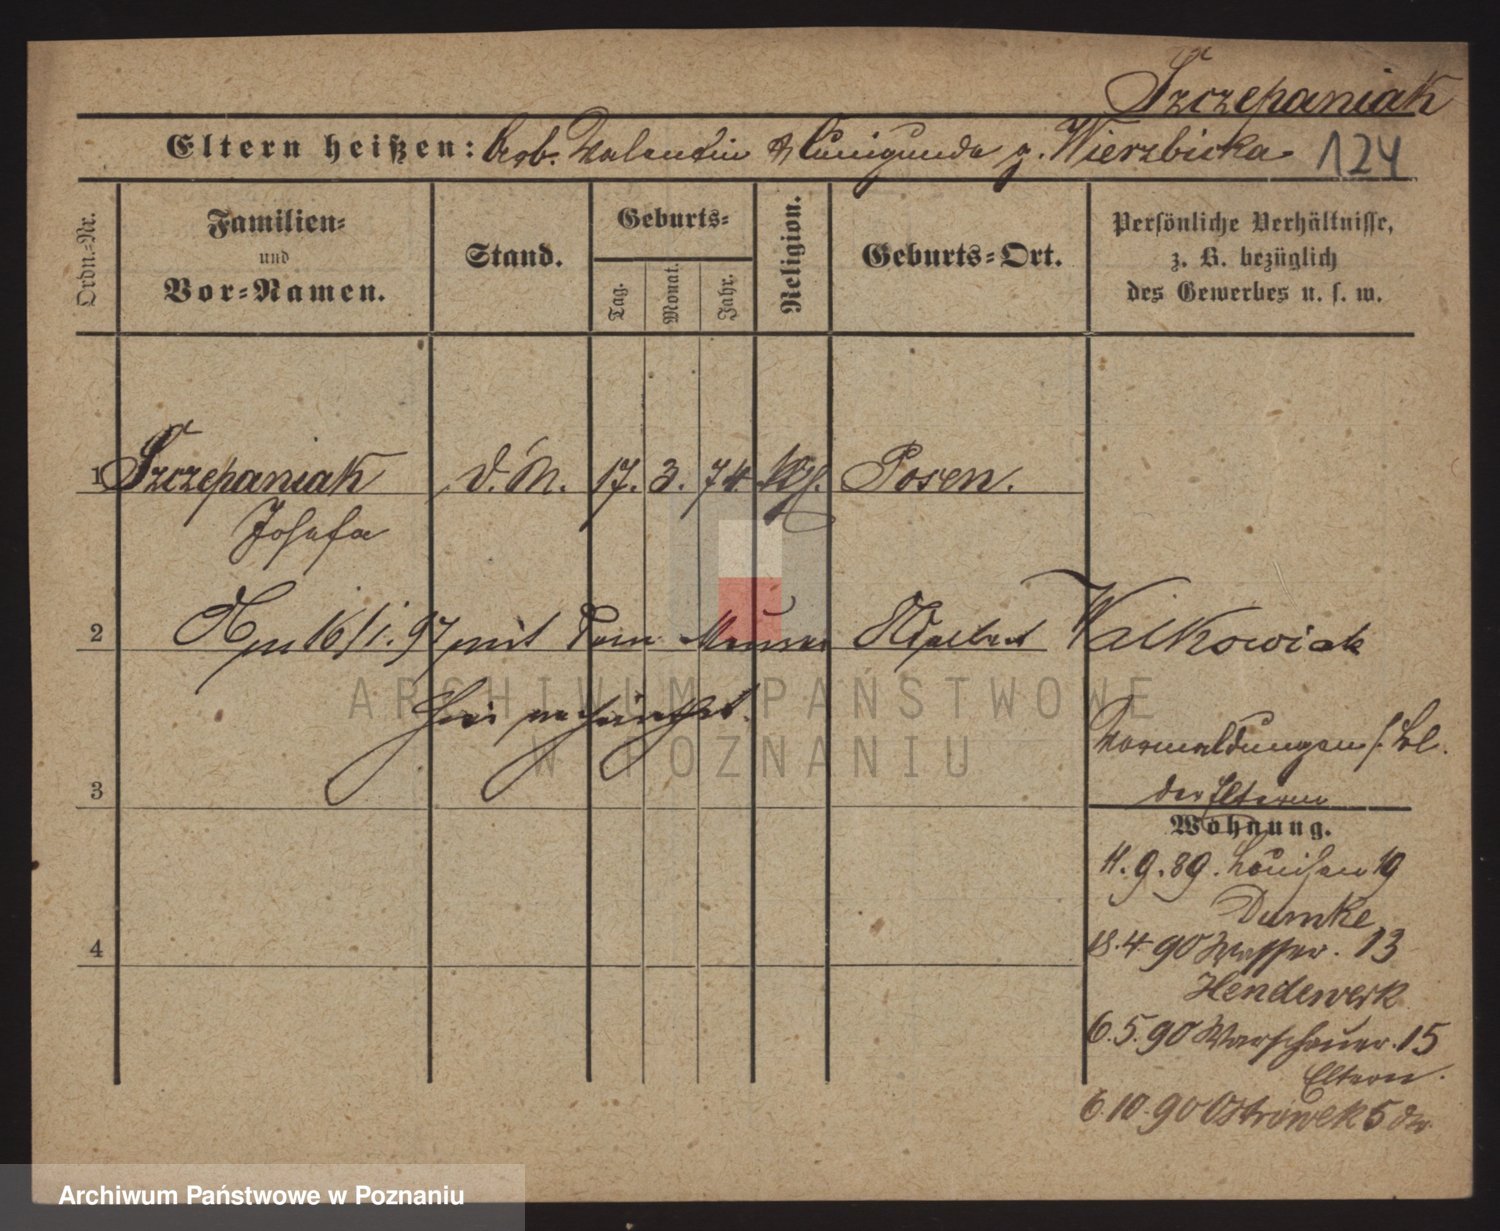 Szczepaniak
Eltern heißen: Arb. Valentin & Cunigunda g. Wierzbicka 124
Ordn.-Nr.
Familien-
und
Vor-Namen.
Stand.
Geburts-
Tag.
Monat.
Jahr.
Religion.
Geburts-Ort.
Persönliche Verhältnisse,
z. B. bezüglich
des Gewerbes u. s. w.
1 Szczepaniak d. M. 17. 3. 74. Posen.
Josefa
2 16/1. 97 mit dem Maurer Adalbert Walkowiak
hier verheirathet.
Vormeldungen s. Bl.
3 der Eltern
Wohnung.
11. 9. 89. Louisen 19
Dumke
4 18. 4 90 Wasser. 13
Hendewerk
6. 5. 90 Warschauer. 15
Eltern.
6. 10. 90 Ostrowek 5 der
ARCHIWUM PAŃSTWOWE
W POZNANIU
Archiwum Państwowe w Poznaniu